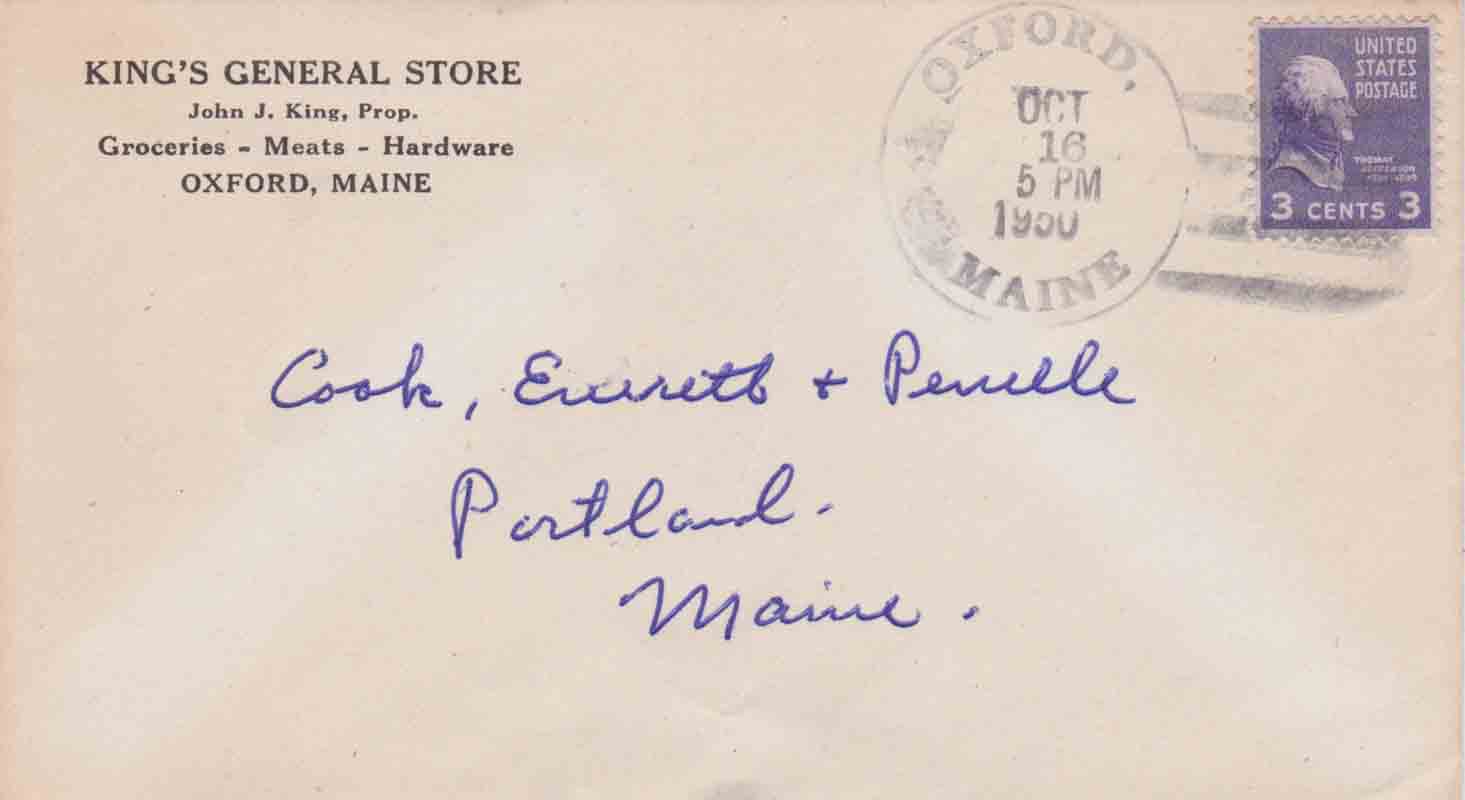 KING'S GENERAL STORE
John J. King, Prop.
Groceries - Meats - Hardware
OXFORD, MAINE
OXFORD,
OCT
16
5 PM
1950
MAINE
UNITED
STATES
POSTAGE
THOMAS
JEFFERSON
3 CENTS 3
Cook, Everett & Pennell
Portland.
Maine.